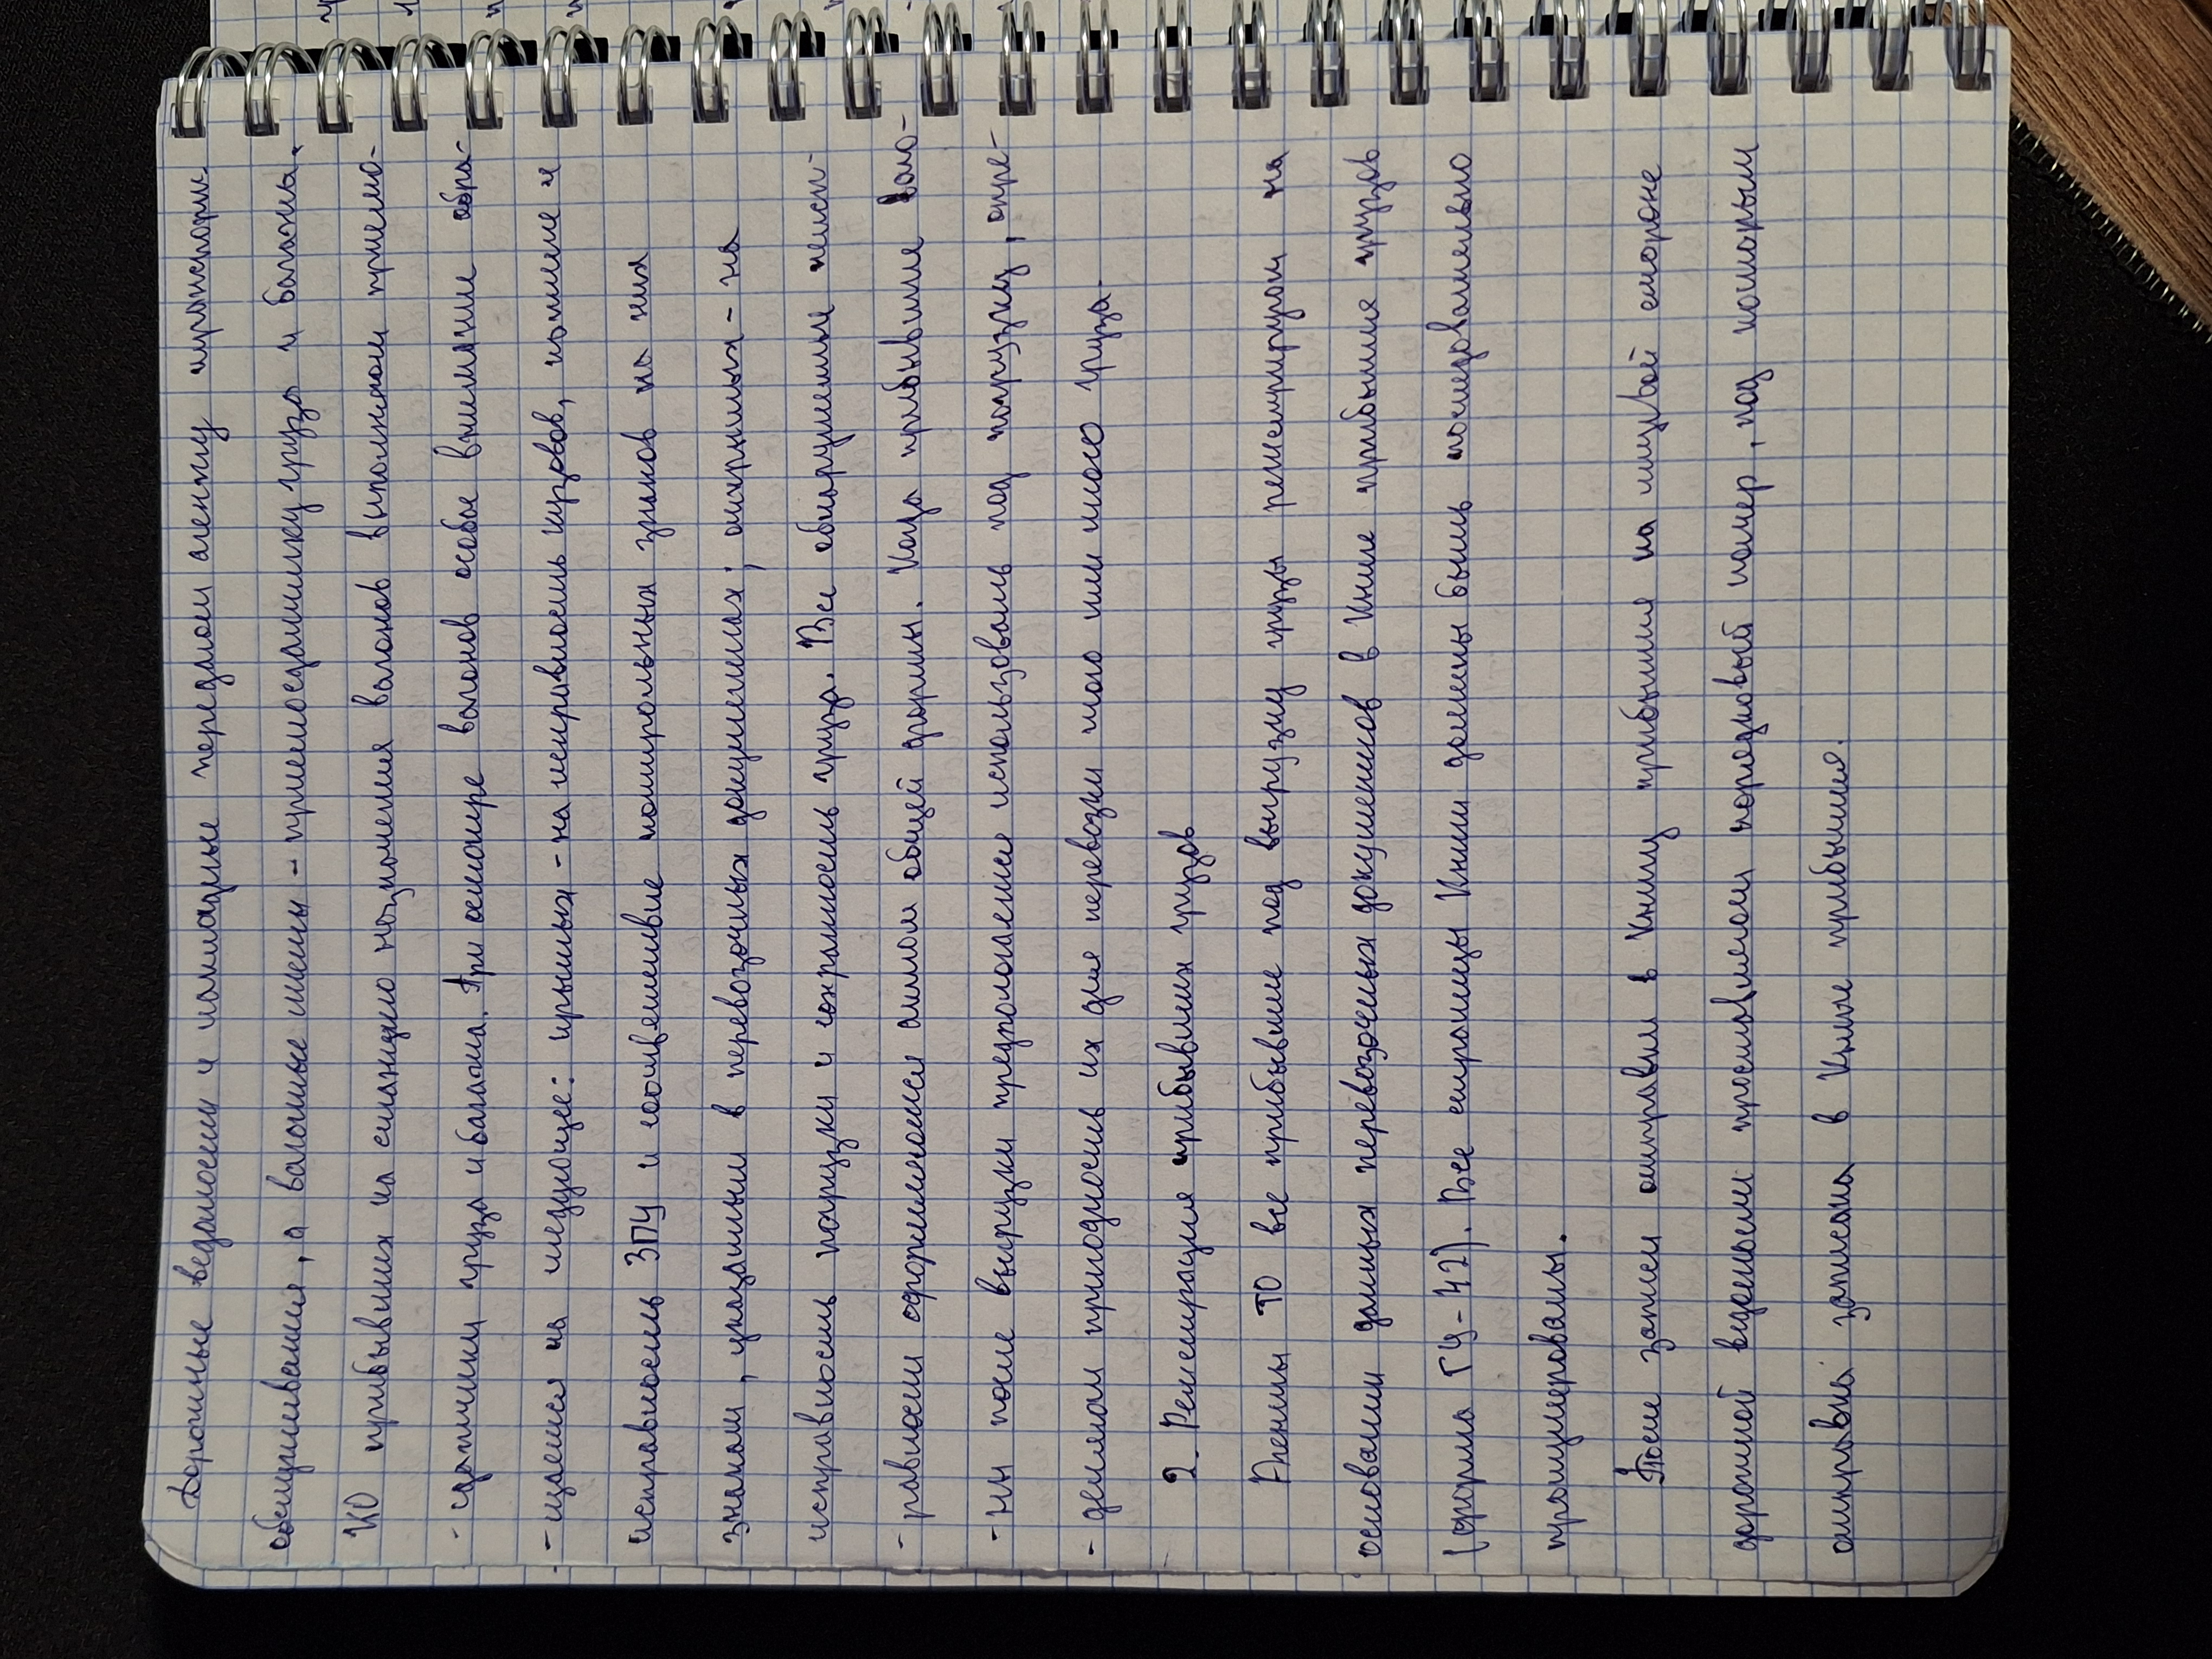 Дорожные ведомости и накладные передают агенту транспорт.
обслуживания, а вагонные листы - приемосдатчику груза и багажа.
КО прибывших на станцию назначения вагонов выполняют приемо-
- сдатчики груза и багажа. При осмотре вагонов особое внимание обра-
- щается на следующее: крытых - на исправность кузовов, наличие и
исправность ЗПУ и соответствие контрольных знаков на них
знакам, указанным в перевозочных документах; открытых - на
исправность погрузки и сохранность груза. Все обнаруженные неисп
- равности оформляются актом общей формы. Когда прибывшие ваго-
- ны после выгрузки предполагается использовать под погрузку, опре-
- деляют пригодность их для перевозки того или иного груза.
2. Регистрация прибывших грузов
Агенты ТО все прибывшие под выгрузку грузы регистрируют на
основании данных перевозочных документов в Книге прибытия грузов
(форма ГУ-42). Все страницы Книги должны быть последовательно
пронумерованы.
После записи отправки в Книгу прибытия на лицевой стороне
дорожной ведомости проставляют порядковый номер, под которым
отправка записана в Книге прибытия.